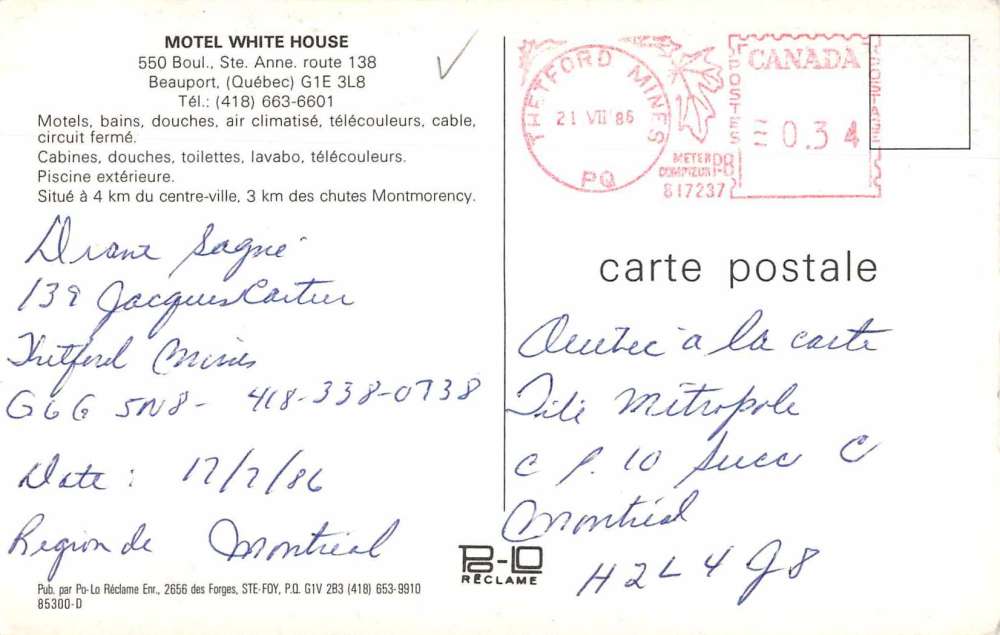 MOTEL WHITE HOUSE
550 Boul., Ste. Anne. route 138
Beauport, (Québec) G1E 3L8
Tél.: (418) 663-6601
Motels, bains, douches, air climatisé, télécouleurs, cable,
circuit fermé.
Cabines, douches, toilettes, lavabo, télécouleurs.
Piscine extérieure.
Situé à 4 km du centre-ville, 3 km des chutes Montmorency.
Diane Gagné
139 Jacques Cartier
Thetford Mines
G6G 5N8- 418-338-0738
Date: 17/7/86
Region de Montréal
Pub. par Po-Lo Réclame Enr., 2656 des Forges, STE-FOY, P.Q. G1V 2B3 (418) 653-9910
85300-D
THETFORD MINES
21 VII 86
PQ
CANADA
POSTES
POSTAGE
0.34
METER
COMPTEUR PB
817237
carte postale
Quebec à la carte
Télé Métropole
C P. 10 Succ C
Montréal
H2L 4J8
PO-LO
RÉCLAME